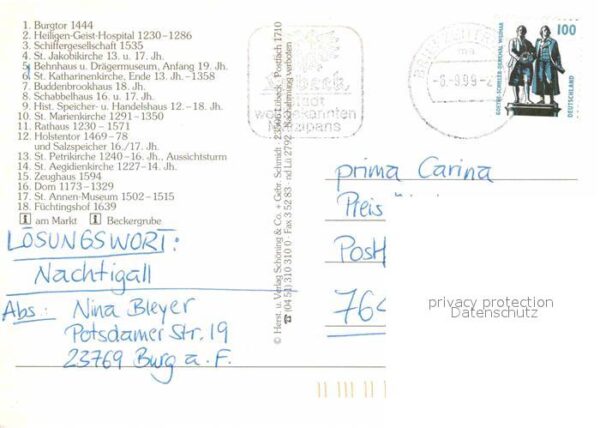 1. Burgtor 1444
2. Heiligen-Geist-Hospital 1230-1286
3. Schiffergesellschaft 1535
4. St. Jakobikirche 13. u. 17. Jh.
5. Behnhaus u. Drägermuseum, Anfang 19. Jh.
6. St. Katharinenkirche, Ende 13. Jh.-1358
7. Buddenbrookhaus 18. Jh.
8. Schabbelhaus 16. u. 17. Jh.
9. Hist. Speicher- u. Handelshaus 12.-18. Jh.
10. St. Marienkirche 1291-1350
11. Rathaus 1230-1571
12. Holstentor 1469-78
und Salzspeicher 16./17. Jh.
13. St. Petrikirche 1240-16. Jh., Aussichtsturm
14. St. Aegidienkirche 1227-14. Jh.
15. Zeughaus 1594
16. Dom 1173-1329
17. St. Annen-Museum 1502-1515
18. Füchtingshof 1639
i am Markt i Beckergrube
LÖSUNGSWORT:
Nachtigall
Abs.: Nina Bleyer
Potsdamer Str. 19
23769 Burg a. F.
© Herst. u. Verlag Schöning & Co. + Gebr. Schmidt, Lübeck, Postfach 1710
☎ (04 51) 310 310 0 · Fax 3 52 83 · nd Lü 2792 · Nachahmung verboten
Stadt
BRIEFZENTRUM
-6.-9.99-2
GOETHE-SCHILLER-DENKMAL WEIMAR
100
DEUTSCHLAND
prima Carina
Preis
Post
764
privacy protection
Datenschutz